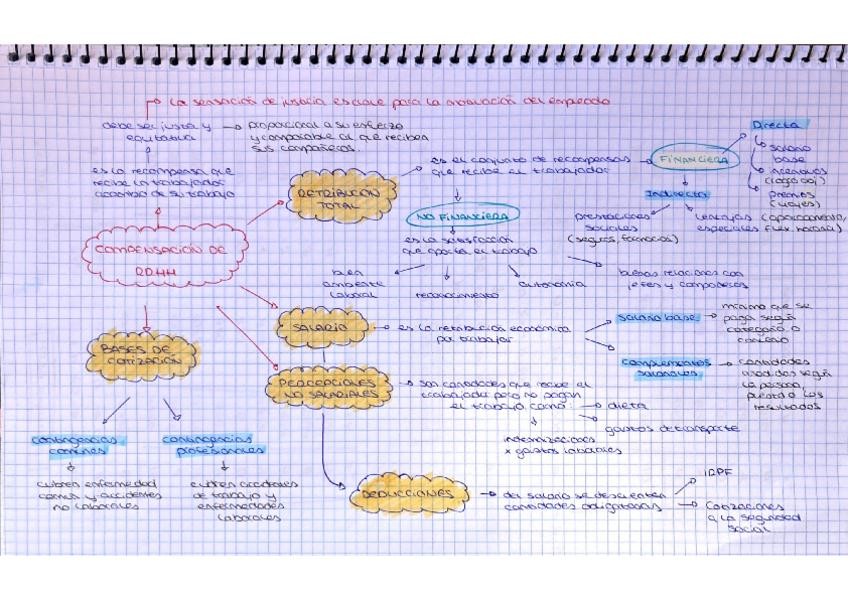 La sensación de justicia es clave para la motivación del empleado
debe ser justa y
equitativa
proporcional a su esfuerzo
y comparable al que reciben
sus compañeros.
es la recompensa que
recibe la trabajadora
a cambio de su trabajo
COMPENSACIÓN DE
RRHH
RETRIBUCIÓN
TOTAL
es el conjunto de recompensas
que recibe el trabajador
FINANCIERA
Directa
salario
base
incentivos
premios
(viajes)
Indirecta
prestaciones
sociales
(seguros, farmacias)
ventajas
especiales
(aparcamiento,
flex. horaria)
NO FINANCIERA
es la satisfacción
que aporta el trabajo
buen
ambiente
laboral
reconocimiento
autonomía
buenas relaciones con
jefes y compañeros
SALARIO
es la retribución económica
por trabajar
salario base
mínimo que se
paga según
categoría o
convenio
complementos
salariales
cantidades
añadidas según
la persona,
puesto o los
resultados
PERCEPCIONES
NO SALARIALES
son cantidades que recibe el
trabajador pero no pagan
el trabajo como:
dieta
gastos de transporte
indemnizaciones
x gastos laborales
BASES DE
COTIZACIÓN
contingencias
comunes
cubren enfermedad
común y accidentes
no laborales
contingencias
profesionales
cubren accidentes
de trabajo y
enfermedades
laborales
DEDUCCIONES
del salario se descuenten
cantidades obligatorias
IRPF
Cotizaciones
a la seguridad
social